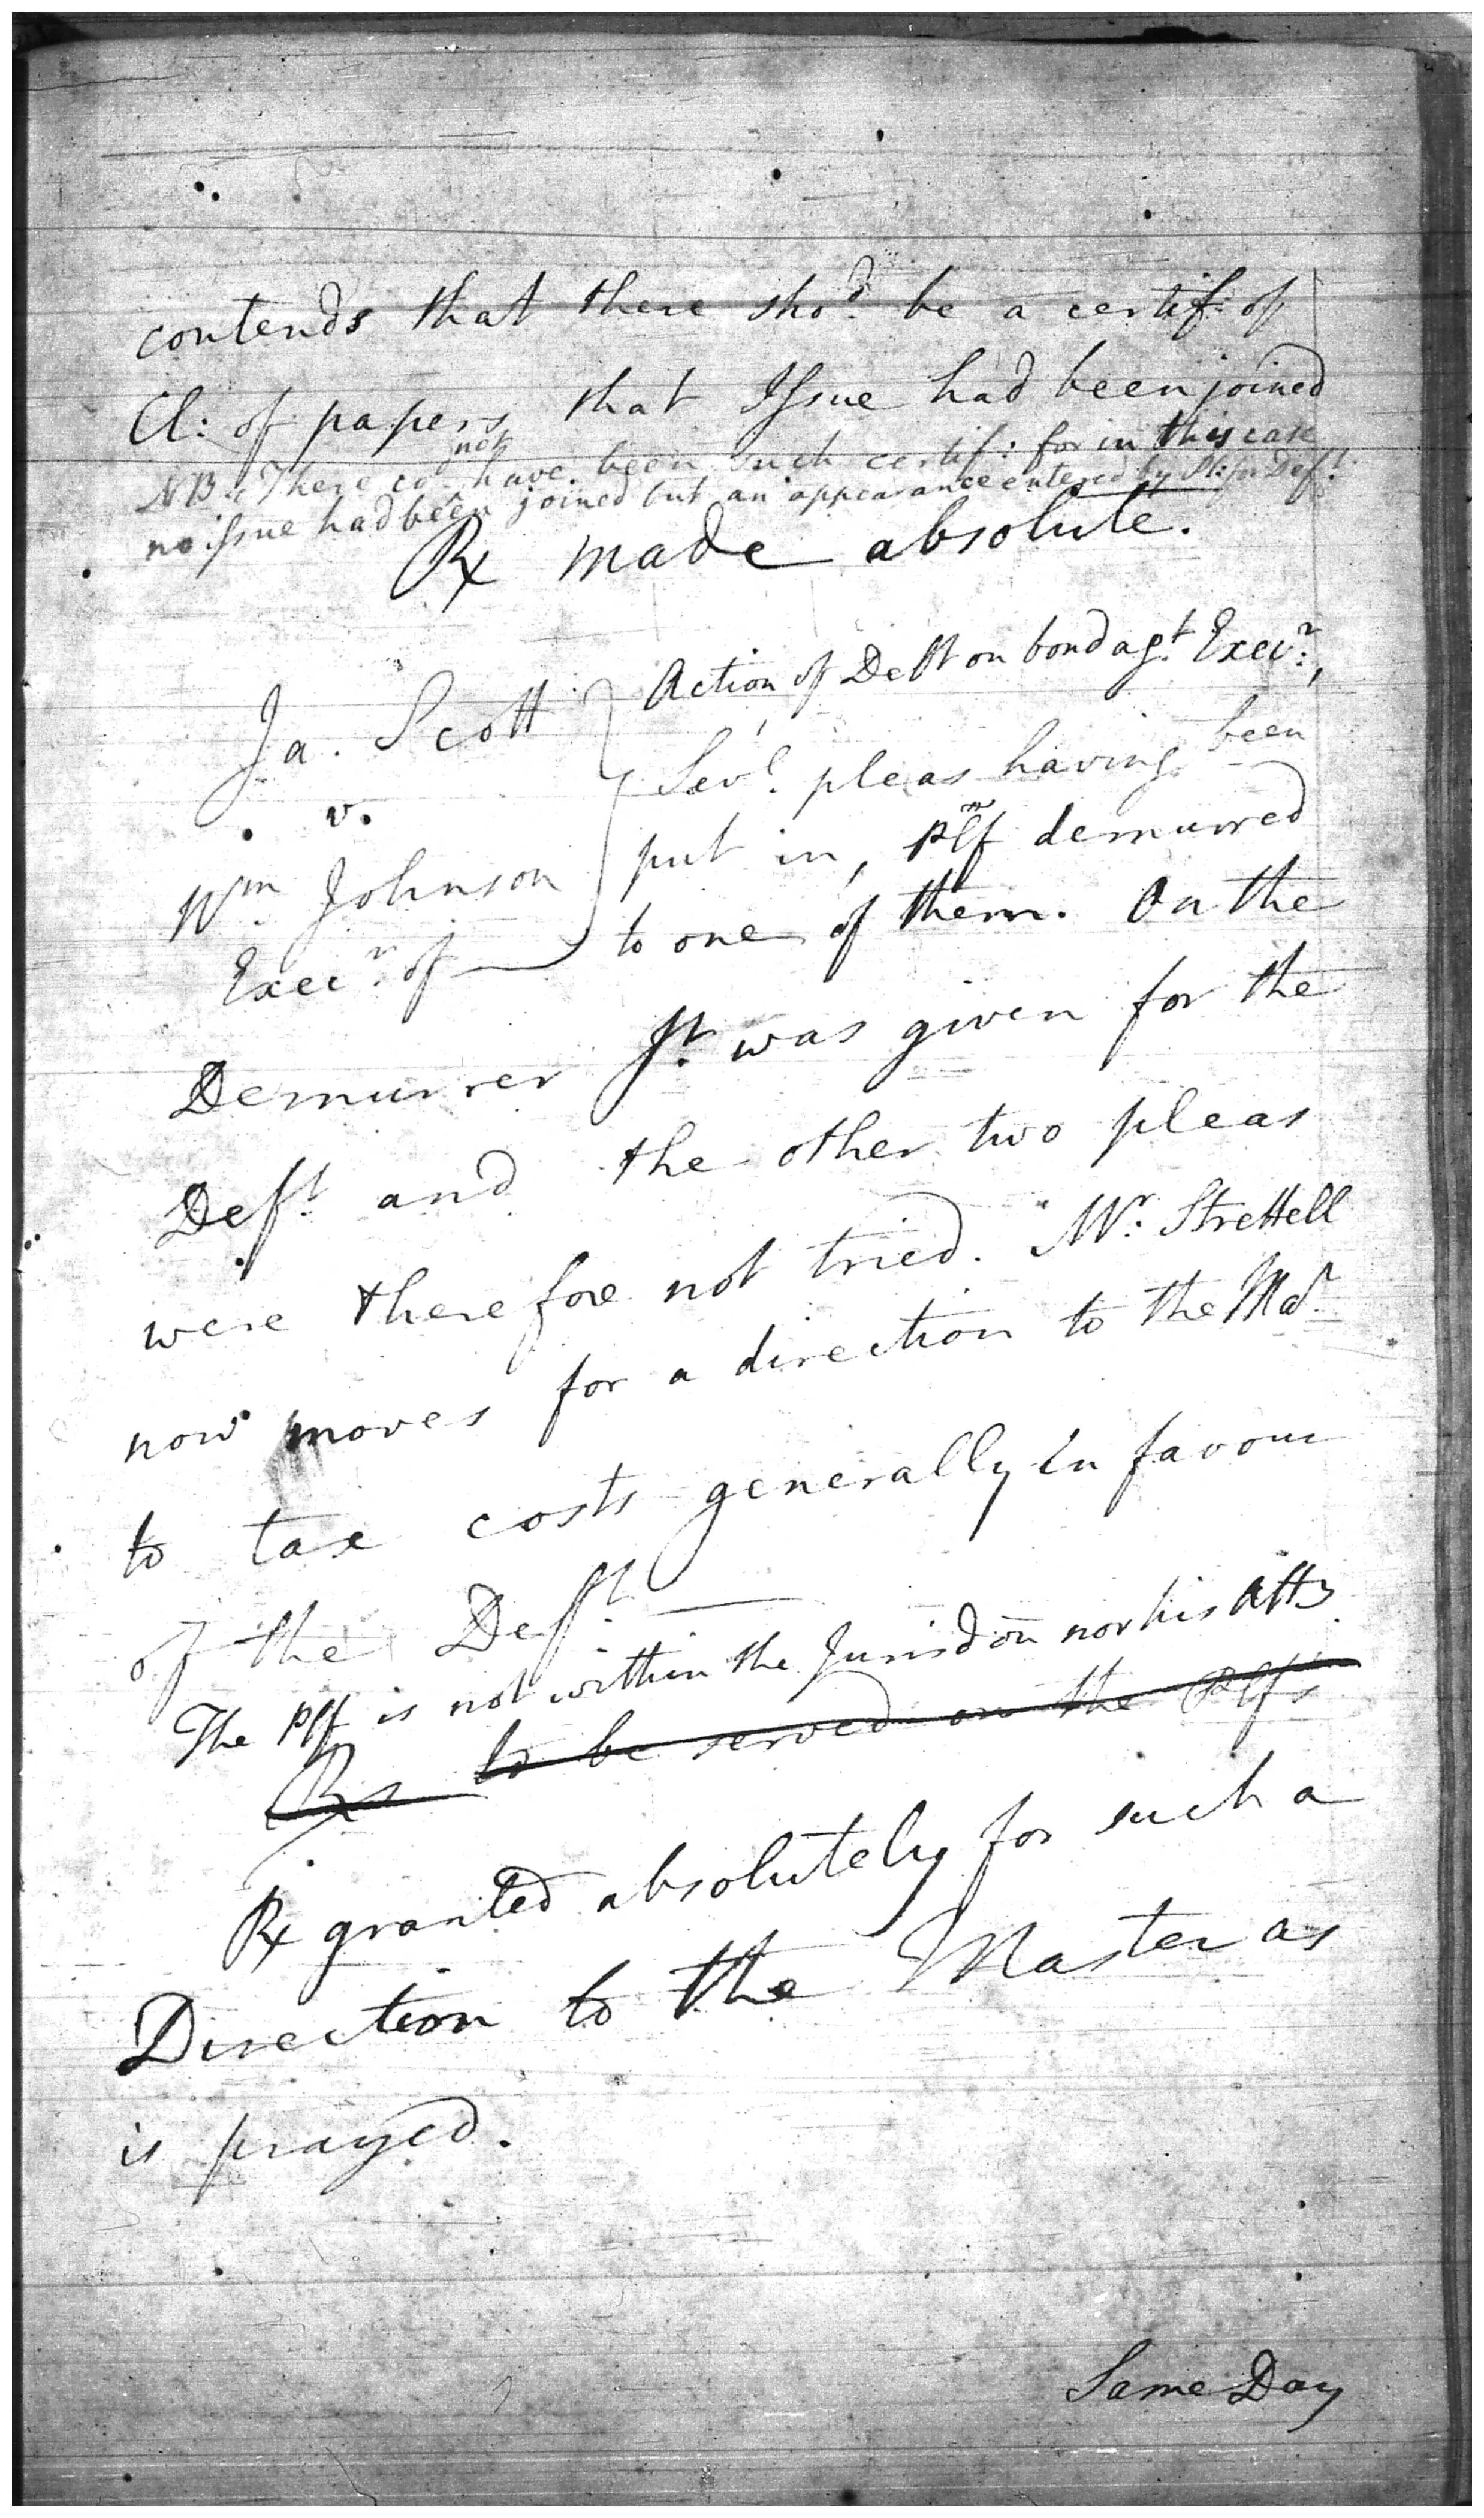 contends that there sho.^d be a certif: of
Cl: of papers that Issue had been joined
NB: There co.^d not have been such certif: for in this case
no issue had been joined but an appearance entered by Pl: for Def.^t
Rx made absolute.
Ja. Scott
v.
W.^m Johnson
Exec.^r of
Action of Debt on bond ag.^t Exec.^r,
Sev.^l pleas having been
put in, Plf demurred
to one of them. On the
Demurrer J.^t was given for the
Def.^t and the other two pleas
were therefore not tried. M.^r Strettell
now moves for a direction to the Ma.^r
to tax costs generally in favour
of the Def.^t
The Plf is not within the Jurisdon nor his Atty
to be served on the Plf's
Rx granted absolutely for such a
Direction to the Master as
is prayed.
Same Day